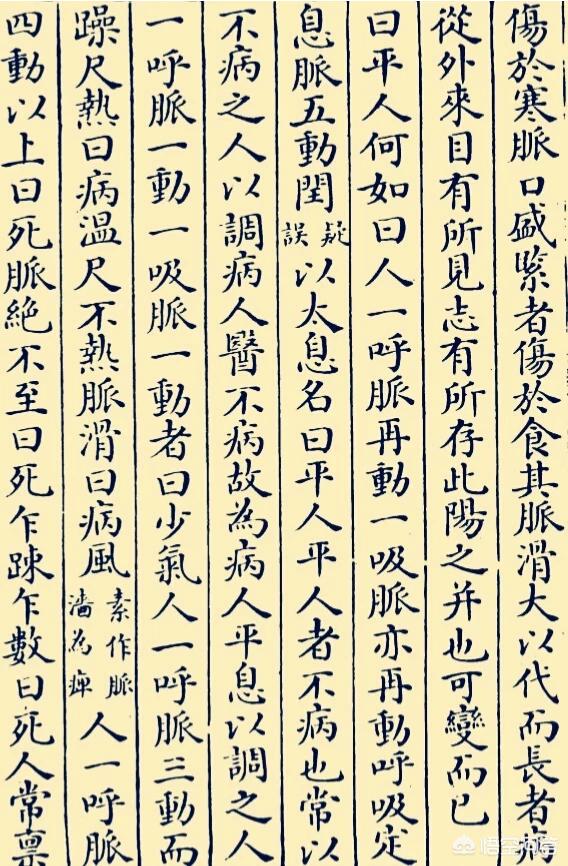 傷於寒脈口盛緊者傷於食其脈滑大以代而長者
從外來目有所見志有所存此陽之并也可變而已
曰平人何如曰人一呼脈再動一吸脈亦再動呼吸定
息脈五動閏疑誤以太息名曰平人平人者不病也常以
不病之人以調病人醫不病故為病人平息以調之人
一呼脈一動一吸脈一動者曰少氣人一呼脈三動而
躁尺熱曰病溫尺不熱脈滑曰病風素作脈濇為痺人一呼脈
四動以上曰死脈絕不至曰死乍踈乍數曰死人常禀
悟空问答